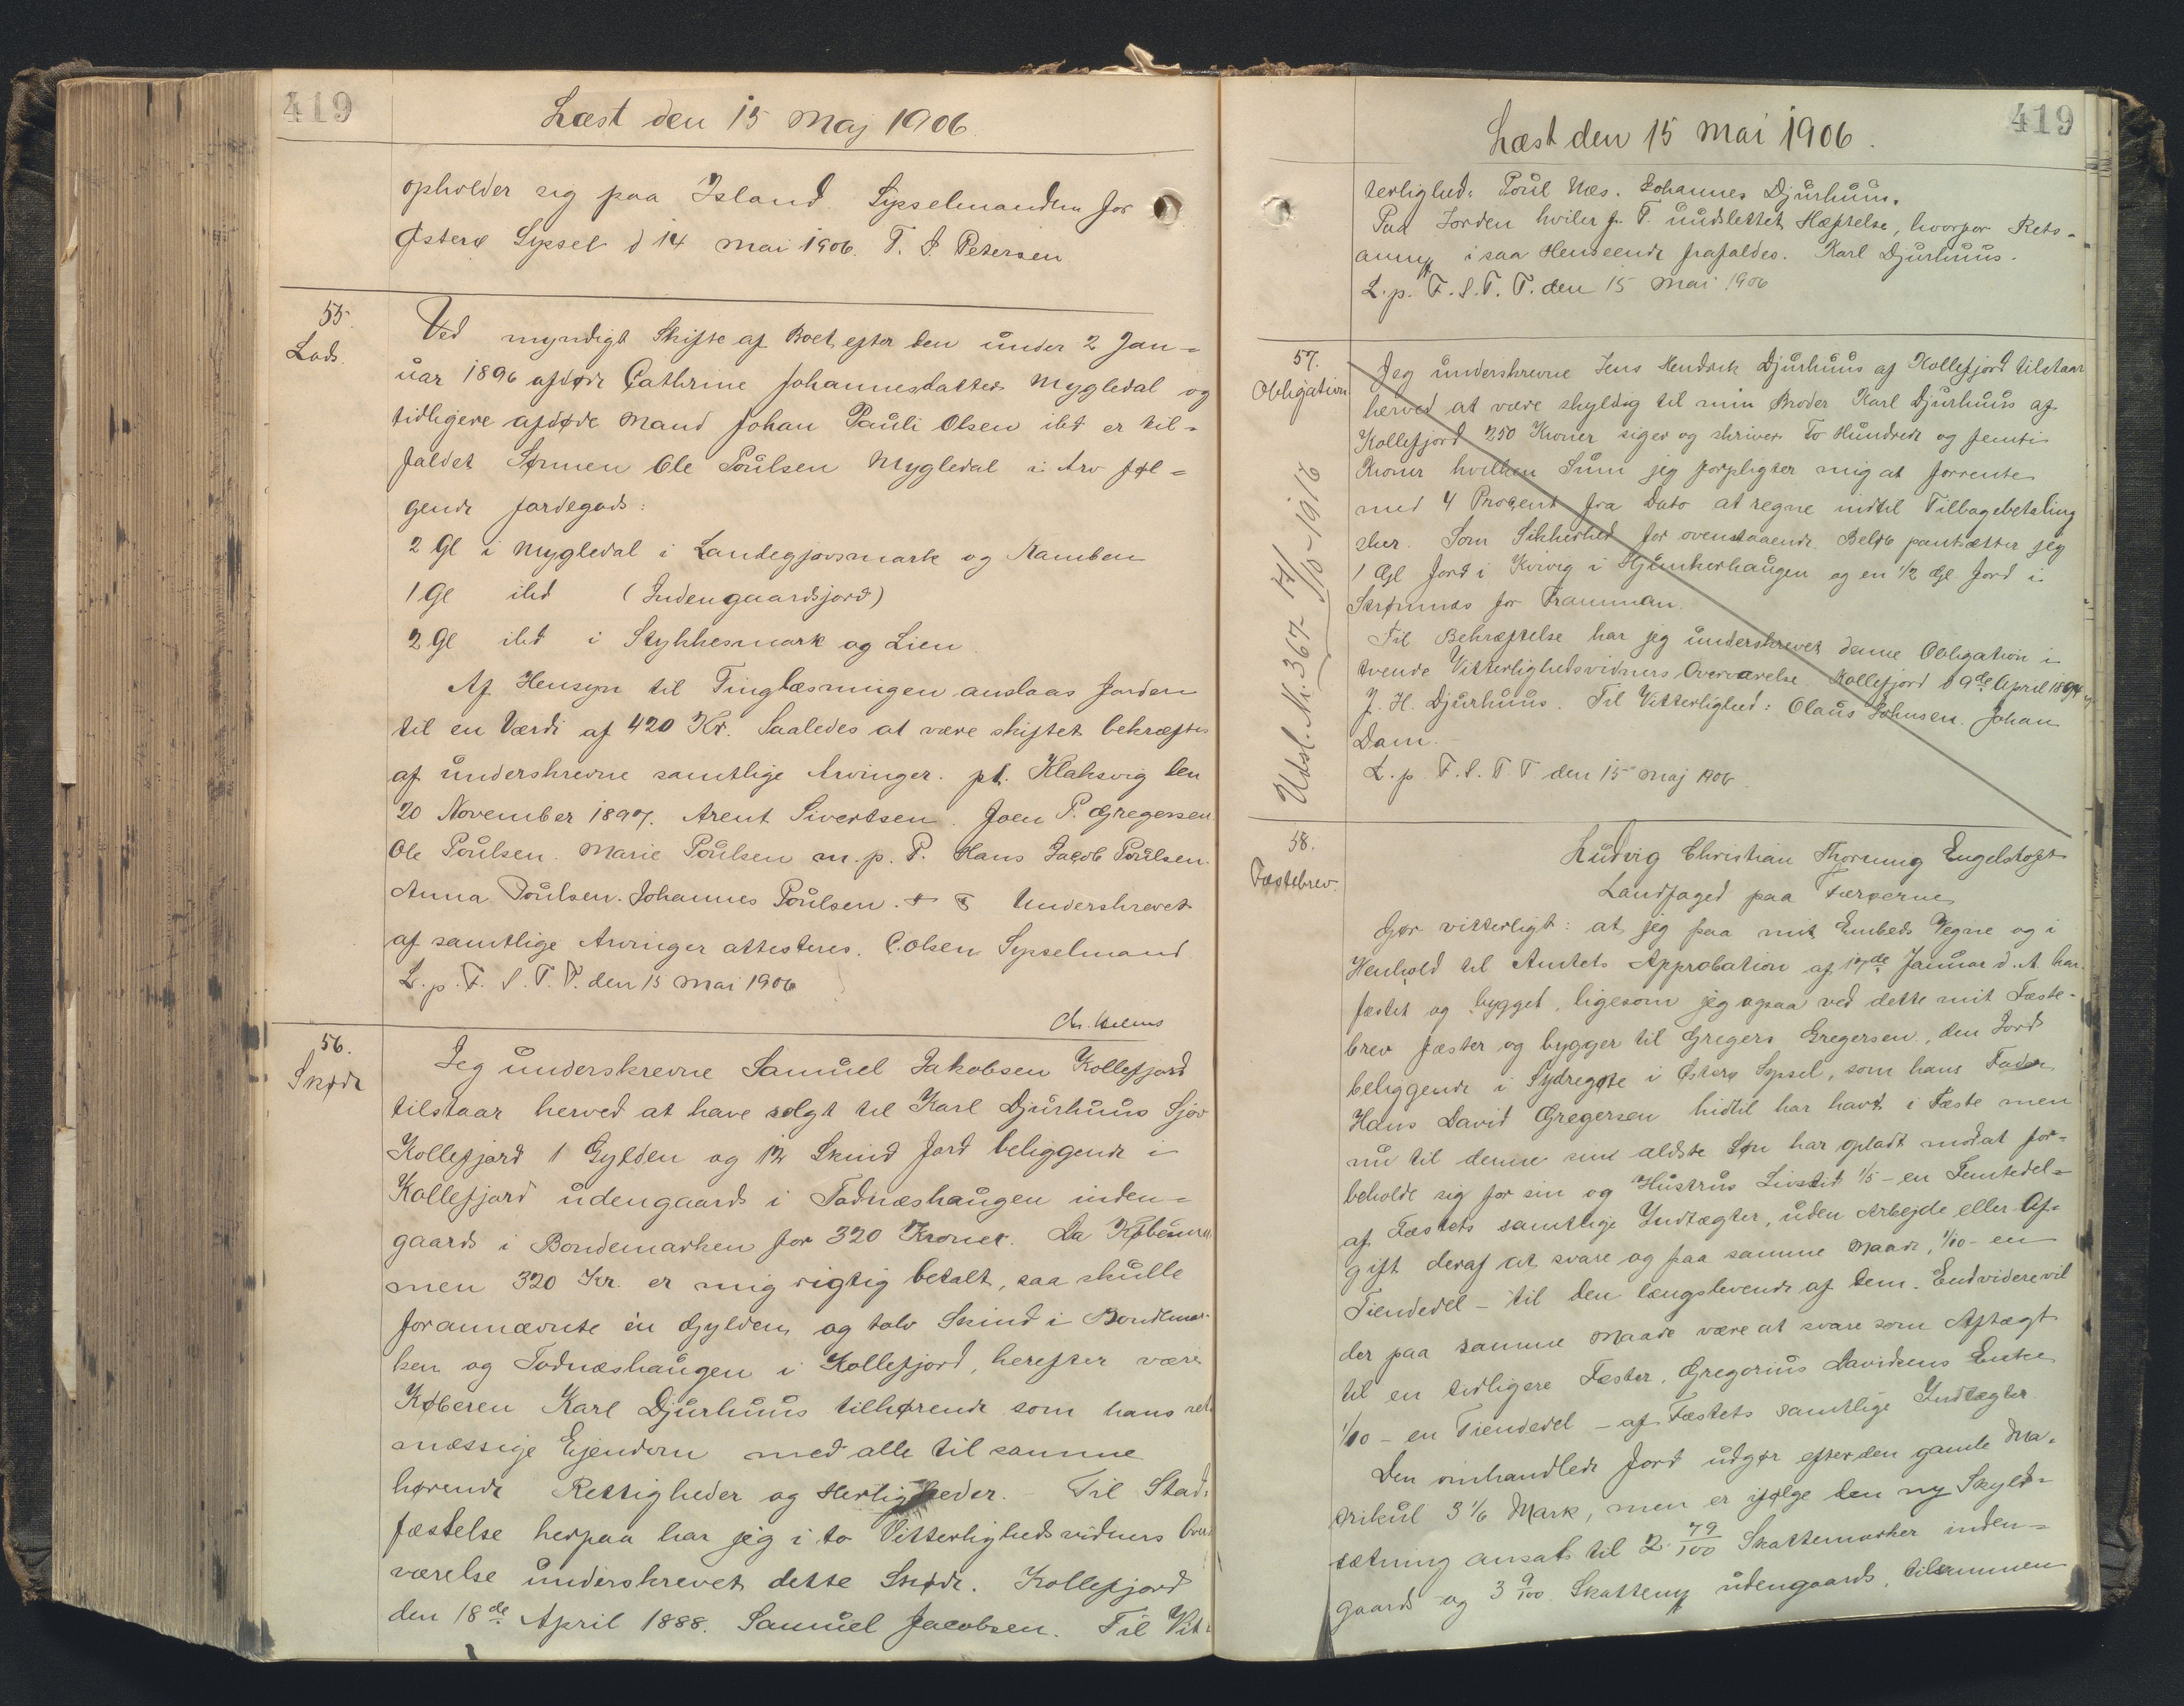 419
Læst den 15 Maj 1906.
opholder sig paa Island. Sysselmanden for
Østerø Syssel d 14 Mai 1906. T. J. Petersen
55.
Lods.
Ved myndigt Skifte af Boet efter den under 2 Jan=
uar 1896 afdøde Cathrine Johannesdatter Mygledal og
tidligere afdøde Mand Johan Pauli Olsen ibd er til=
faldet Sønnen Ole Poulsen Mygledal i Arv føl=
gende Jordegods:
2 Gl i Mygledal i Landegjovsmark og Kamben
1 Gl ibd (Indengaardsjord)
2 Gl ibd i Stykkesmork og Lien
Af Hensyn til Tinglæsningen anslaas Jorden
til en Værdi af 420 Kr. Saaledes at være skiftet bekræftes
af underskrevne samtlige Arvinger. pt. Klaksvig den
20 November 1897. Arent Sivertsen. Joen P. Gregersen
Ole Poulsen. Marie Poulsen m. p. P. Hans Jacob Poulsen.
Anna Poulsen. Johannes Poulsen. Underskrevet
af samtlige Arvinger attesteres. C. Olsen Sysselmand
L. p. F. S. T. T. den 15 Mai 1906
56.
Skøde
Jeg underskrevne Samuel Jakobsen Kollefjord
tilstaar herved at have solgt til Karl Djurhuus Sjov
Kollefjord 1 Gylden og 12 Skind Jord beliggende i
Kollefjord udengaards i Todnæshaugen inden=
gaards i Bondemarken for 320 Kroner. Da Købesum
men 320 Kr. er mig rigtig betalt, saa skulle
forannævnte en Gylden og tolv Skind i Bondemar-
ken og Todnæshaugen i Kollefjord, herefter være
Køberen Karl Djurhuus tilhørende som hans ret
mæssige Ejendom med alle til samme
hørende Rettigheder og Herligheder. - Til Stad=
fæstelse herpaa har jeg i to Vitterlighedsvidners Over
værelse underskrevet dette Skøde. Kollefjord
den 18de April 1888. Samuel Jacobsen. Til Vit=
419
Læst den 15 Mai 1906.
terlighed: Poul Næs. Johannes Djurhuus.
Paa Jorden hviler f. T. uudslettet Hæftelse, hvorfor Rets=
anm i saa Henseende frafaldes. Karl Djurhuus.
L. p. F. S. T. T. den 15 Mai 1906
57.
Obligation
Udsl. Nr. 367 - 17/10 - 1916
Jeg underskrevne Jens Hendrik Djurhuus af Kollefjord tilstaar
herved at være skyldig til min Broder Karl Djurhuus af
Kollefjord 250 Kroner siger og skriver To Hundrede og femti
Kroner hvilken Sum jeg forpligter mig at forrente
med 4 Procent fra Dato at regne indtil Tilbagebetaling
sker. Som Sikkerhed for ovenstaaende Beløb pantsætter jeg
1 Gl Jord i Kvivig i Hjunkerhaugen og en 1/2 Gl Jord i
Strømnæs for Framman.
Til Bekræftelse har jeg underskrevet denne Obligation i
tvende Vitterlighedsvidners Overværelse. Kollefjord d 9de April 1894
J. H. Djurhuus. Til Vitterlighed: Olaus Johnsen. Johan
Dam.
L. p. F. S. T. T. den 15 Maj 1906
58.
Fæstebrev.
Ludvig Christian Thorning Engelstoft
Landfoged paa Færøerne
Gør vitterligt: at jeg paa mit Embeds Vegne og i
Henhold til Amtets Approbation af 17de Januar d. A. har
fæstet og bygget, ligesom jeg ogsaa ved dette mit Fæste-
brev fæster og bygger til Gregers Gregersen, den Jord
beliggende i Sydregøte i Østerø Syssel, som hans Fader
Hans David Gregersen hidtil har havt i Fæste men
nu til denne sin ældste Søn har opladt mod at for=
beholde sig for sin og Hustrus Livstid 1/5 - en Femtedel=
af Fæstets samtlige Indtægter, uden Arbejde eller Af=
gift deraf at svare og paa samme Maade, 1/10 - en
Tiendedel - til den længstlevende af dem. Endvidere vil
der paa samme Maade være at svare som Aftægt
til en tidligere Fæster, Gregorius Davidsens Enke
1/10 - en Tiendedel - af Fæstets samtlige Indtægter
Den omhandlede Jord udgør efter den gamle Ma=
trikul 3 1/6 Mark, men er ifølge den ny Skyld=
sætning ansat til 2 79/100 Skattemarker inden=
gaards og 3 9/100 Skattem udengaards, tilsammen